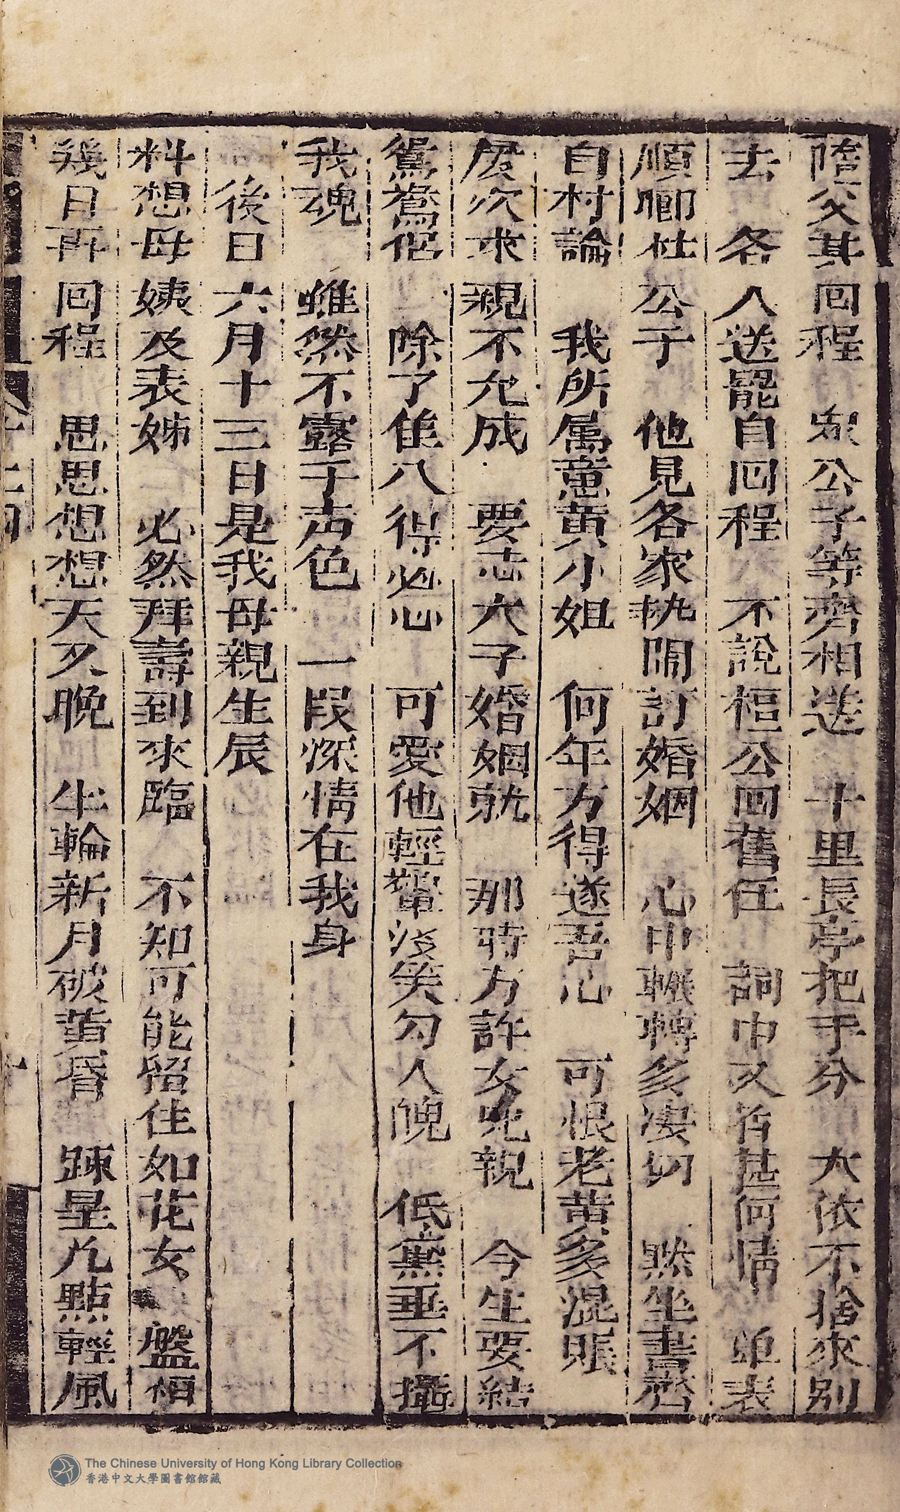 隨父其回程 衆公子等齊相送 十里長亭把手分 大依不捨來別
去 各人送罷自回程 不說桓公回舊任 詞中又省甚何情 単表
順卿杜公子 他見各家执閙訂婚姻 心中輾轉多凄切 黙坐書齋
自村論 我所属意黄小姐 何年方得遂吾心 可恨老黄多混賬
屡次求親不允成 要志六子婚姻就 那時方許女児親 今生要結
鴛鴦侶 除了隹人得必心 可愛他輕顰淺笑勾人魄 低黛垂不攝
我魂 虽然不露于声色 一叚深情在我身
後日六月十三日是我母親生辰
料想母姨及表姊 必然拜壽到來臨 不知可能留住如花女 盤桓
幾日再回程 思思想想天又晚 半輪新月破黄昏 踈星几點輕風
The Chinese University of Hong Kong Library Collection
香港中文大學圖書館館藏